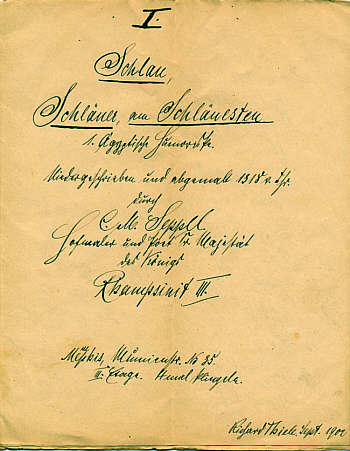 I.
Schlau,
Schläuer, am Schläuesten
1. Ägyptische Humoreske.
Niedergeschrieben und abgemalt 1315 v. Chr.
durch
C. M.
Hofmaler und Poet Sr Majestät
des Königs
Rhampsinit III.
Mumienstr. No 35.
Etage. 4 mal klingeln.
Richard Thiele. Sept. 1902